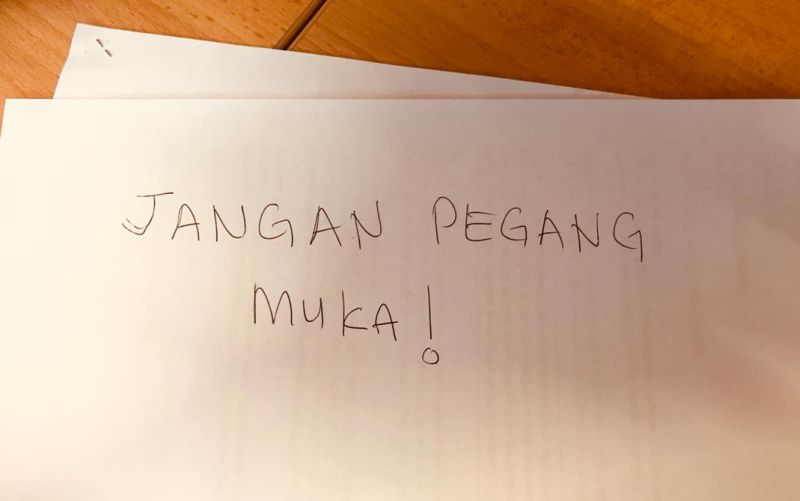 JANGAN PEGANG
MUKA!